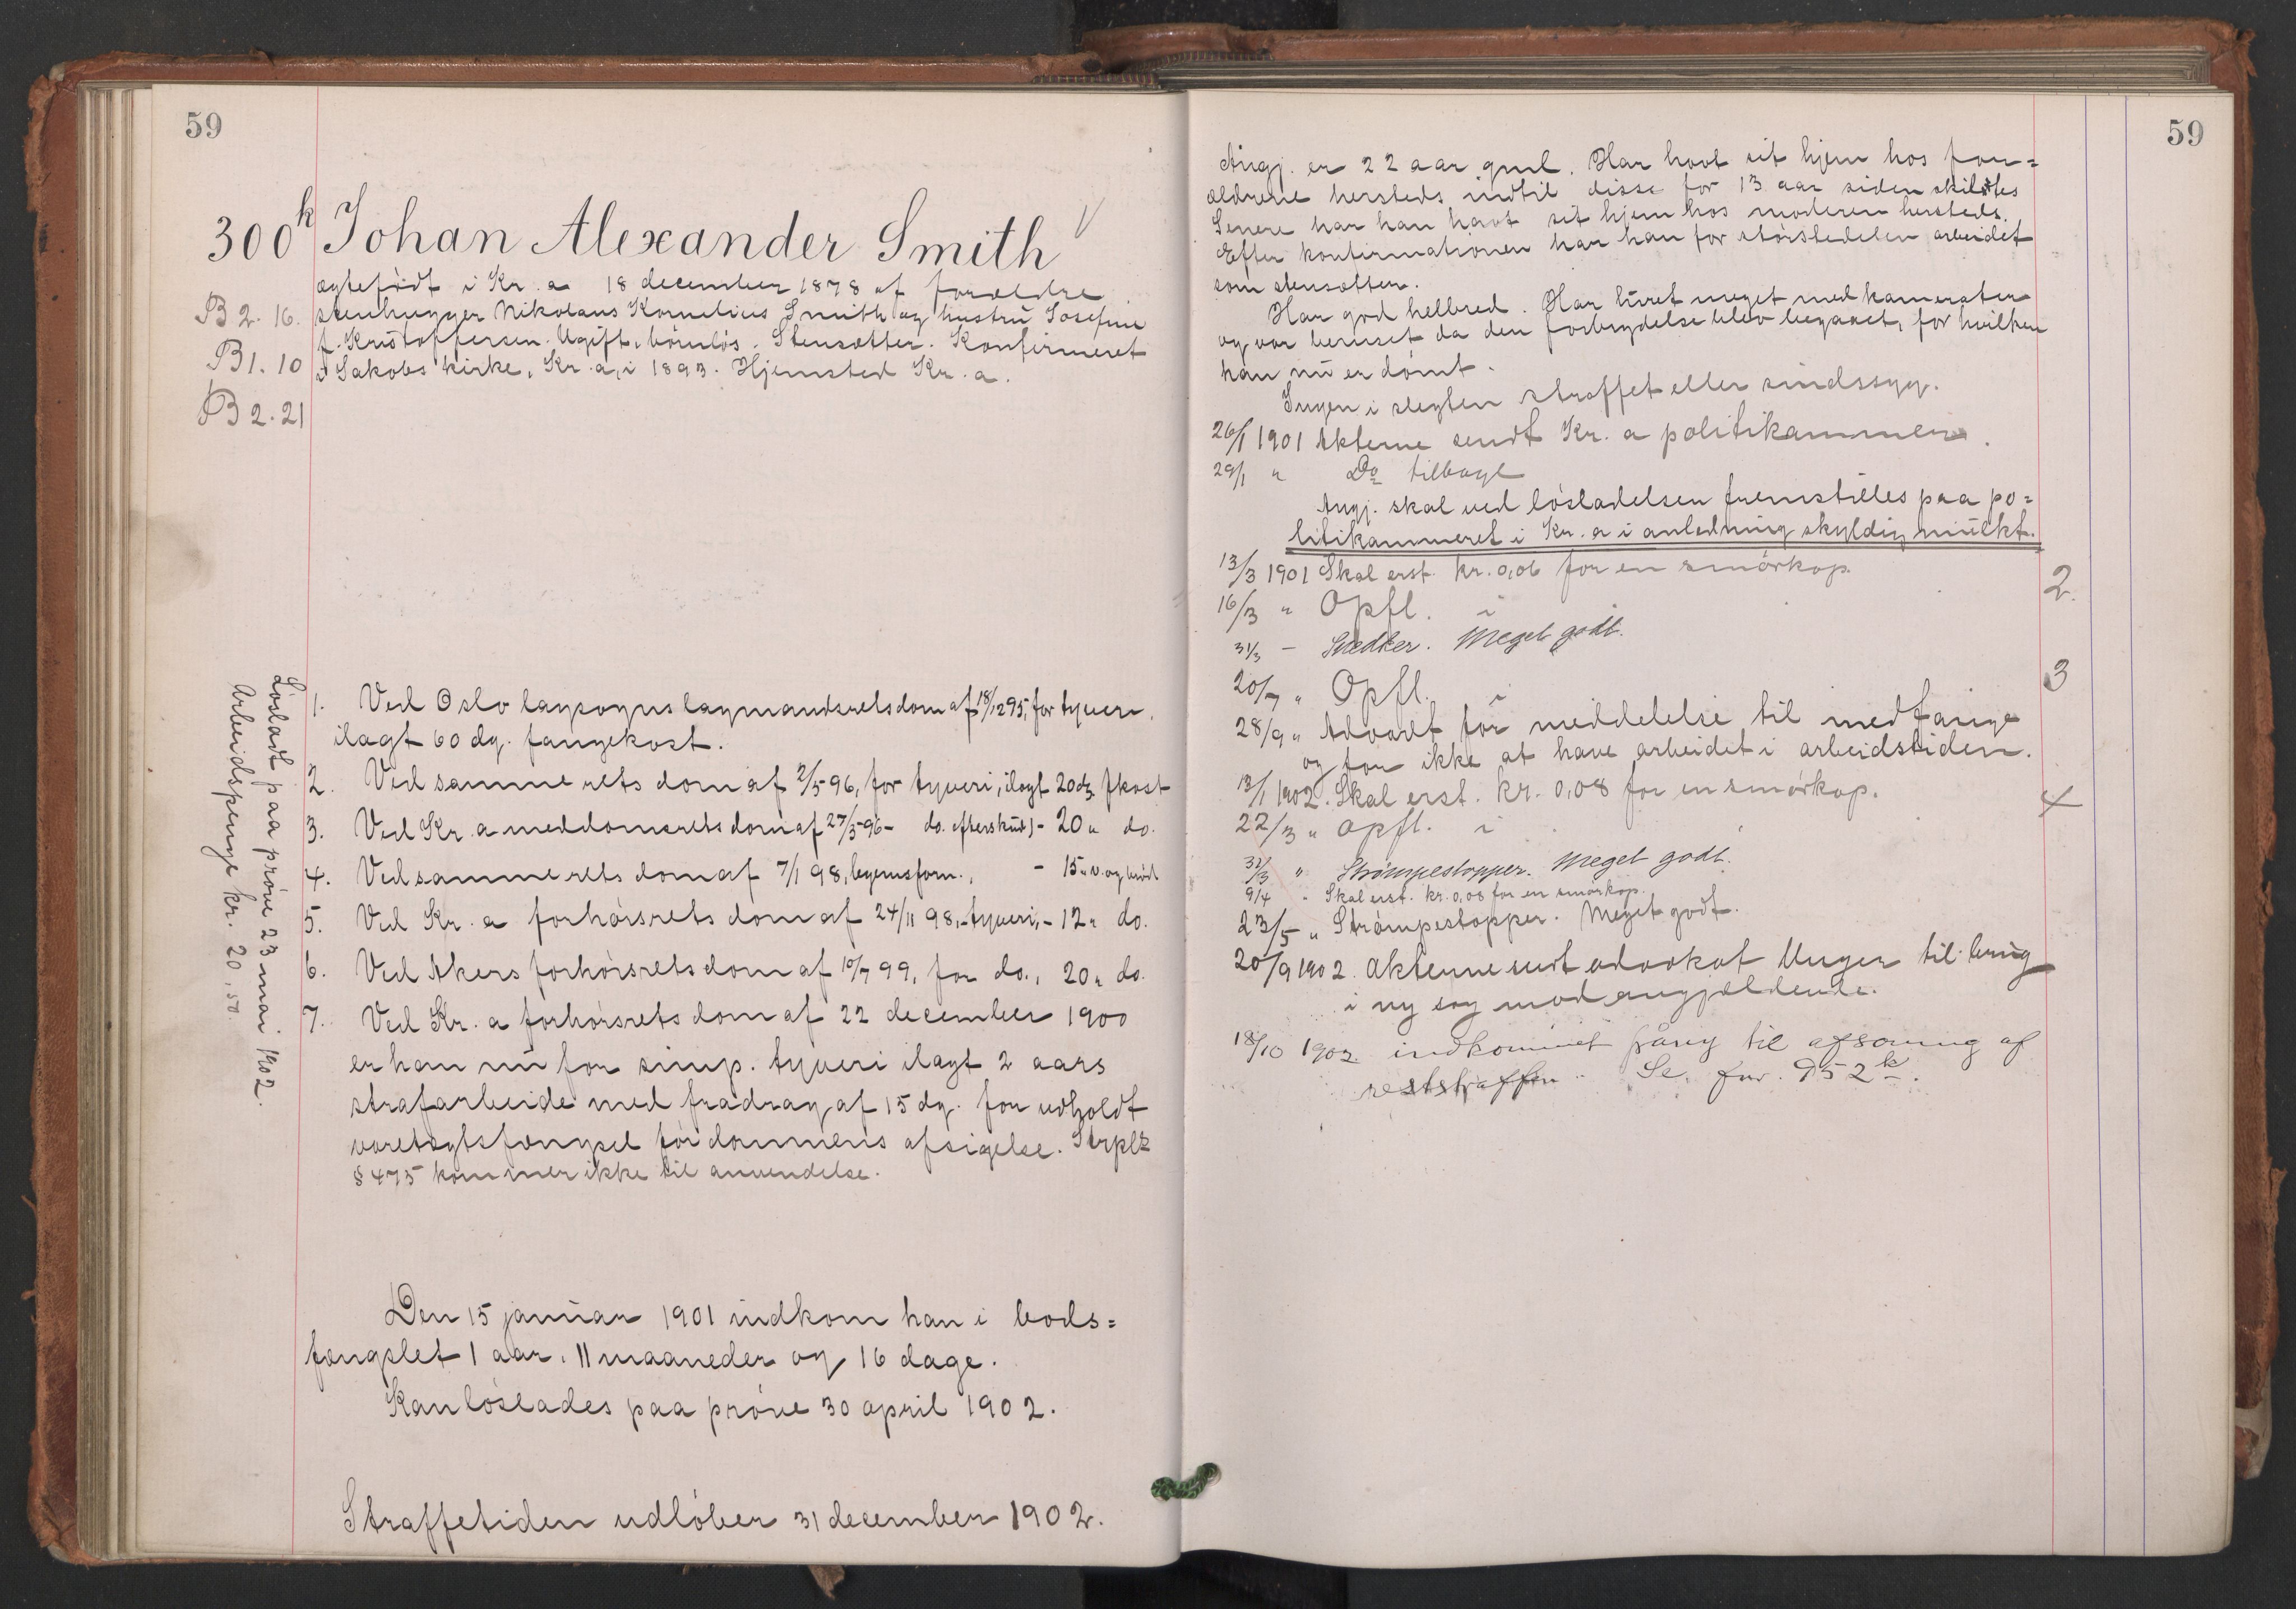 59
300k Johan Alexander Smith
ægtefödt i Kr.a 18 december 1878 af forældre
B 2. 16. stenhugger Nikolaus Kornelius Smith og hustru Josefine
f. Kristoffersen. Ugift, börnlös. Stensætter. Konfirmeret
B 1. 10 i Jakobs kirke, Kr.a, i 1893. Hjemsted Kr.a.
B 2. 21
1. Ved Oslo lagsogns lagmandsretsdom af 18/12 95, for tyveri,
ilagt 60 dg. fangekost.
2. Ved samme rets dom af 2/5 96, for tyveri, ilagt 20 dg. fkost
3. Ved Kr.a meddomsrets dom af 27/5 96 - do. efterskud) - 20 " do.
4. Ved samme rets dom af 7/1 98, legemsforn., - 15 " v. og bröd
5. Ved Kr.a forhörsrets dom af 24/11 98, - tyveri, - 12 " do.
6. Ved Akers forhörsrets dom af 10/7 99, for do., 20 " do.
7. Ved Kr.a forhörsrets dom af 22 december 1900
er han nu for simp. tyveri ilagt 2 aars
strafarbeide med fradrag af 15 dg. for udholdt
varetægtsfængsel för dommens afsigelse. Strplz
§ 475 kommer ikke til anvendelse.
Lösladt paa pröve 23 mai 1902.
Arbeidspenge kr. 20,50.
Den 15 januar 1901 indkom han i bods=
fængslet 1 aar, 11 maaneder og 16 dage.
Kan löslades paa pröve 30 april 1902.
Straffetiden udlöber 31 december 1902.
59
Angj. er 22 aar gml. Har havt sit hjem hos for=
ældrene hersteds indtil disse for 13 aar siden skildtes
Senere har han havt sit hjem hos moderen hersteds.
Efter konfirmationen har han for störstedelen arbeidet
som stensætter.
Har god helbred. Har turet meget med kamerater
og var beruset da den forbrydelse blev begaaet, for hvilken
han nu er dömt.
Ingen i slegten straffet eller sindssyg.
26/1 1901 Akterne sendt Kr.a politikammer.
29/1 " Do tilbage
Angj. skal ved lösladelsen fremstilles paa po=
litikammeret i Kr.a i anledning skyldig mulkt.
13/3 1901 Skal erst. kr. 0,06 for en smörkop.
16/3 " Opfl. i 2.
31/3 - Snedker. Meget godt.
20/7 " Opfl. i 3
28/9 " Advaret for meddelelse til medfange
og for ikke at have arbeidet i arbeidstiden.
13/1 1902. Skal erst. kr. 0,08 for en smörkop.
22/3 " Opfl. i 4
31/3 " Strömpestopper. Meget godt.
9/4 " Skal erst. kr. 0,08 for en smörkop.
23/5 " Strömpestopper. Meget godt.
20/9 1902. Akterne sendt advokat Unger til brug
i ny sag mod angjældende.
18/10 1902. indkommet påny til afsoning af
reststraffen. Se fnr. 952k.